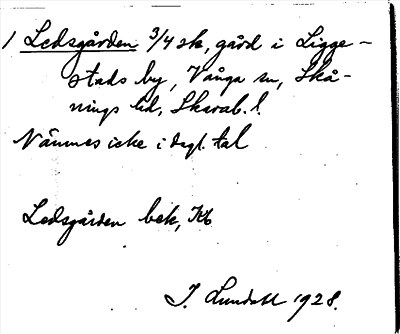 1 Ledsgården 3/4 sk, gård i Ligge-
stads by, Vånga sn, Skå-
nings hd, Skarab. l.
Nämnes icke i dagl. tal
Ledsgården bek, Kb
J. Lundahl 1928.